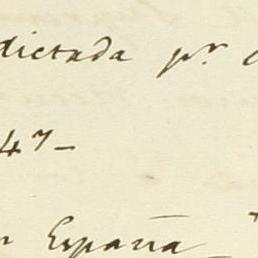 dictada pr
47-
España